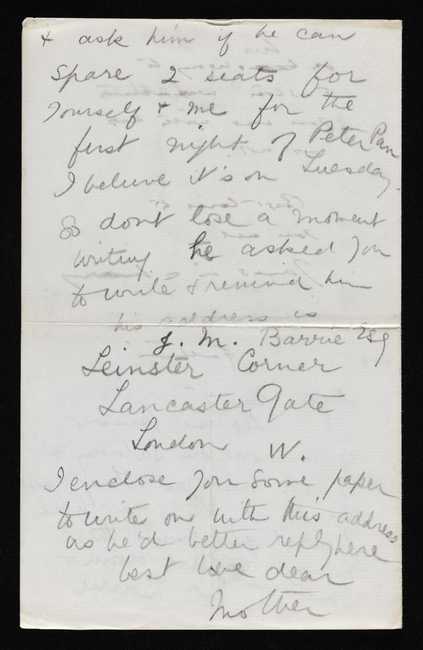 & ask him if he can
spare 2 seats for
yourself & me for the
first night of Peter Pan
I believe it's on Tuesday.
So dont lose a moment
writing he asked you
to write & remind him
his address is
J. M. Barrie Esq
Leinster Corner
Lancaster Gate
London W.
I enclose you some paper
to write on with this address
as he'd better reply here
best love dear
Mother